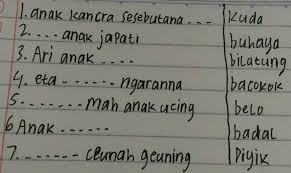 1. anak kancra sesebutana... kuda
2. .... anak japati buhaya
3. Ari anak .... bilatung
4. eta ...... ngaranna bacokok
5. ....... mah anak ucing belo
6 Anak ...... badal
7. ....... ceunah geuning piyik